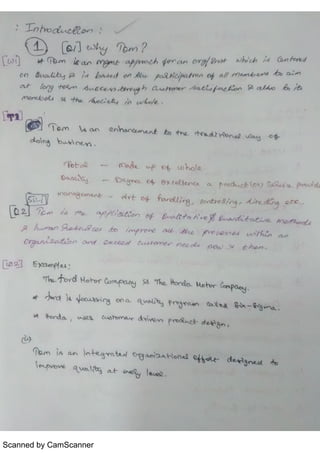 : Introduction :
① [Q1] Why TQM?
[W1] * TQM is an mgmt approach for an org/Inst which is centered
on Quality & is based on the participation of all members & aim
at long term success through customer satisfaction & also to its
members & the society in whole.
TQM is an enhancement to the traditional way of
doing business.
Total — made up of whole
Quality — Degree of excellence a product (or) service provide
management - Art of handling, controlling, directing etc.
[Q2] TQM is the application of Qualitative & Quantitative methods
& human Resources to improve all the processes within an
organisation and exceed customer needs now & then.
Examples:
The ford Motor Company & The Honda Motor Company.
* ford is focusing on a quality program called Six-Sigma.
* Honda, uses customer driven product design.
TQM is an integrated organisational effort designed to
improve quality at every level.
Scanned by CamScanner